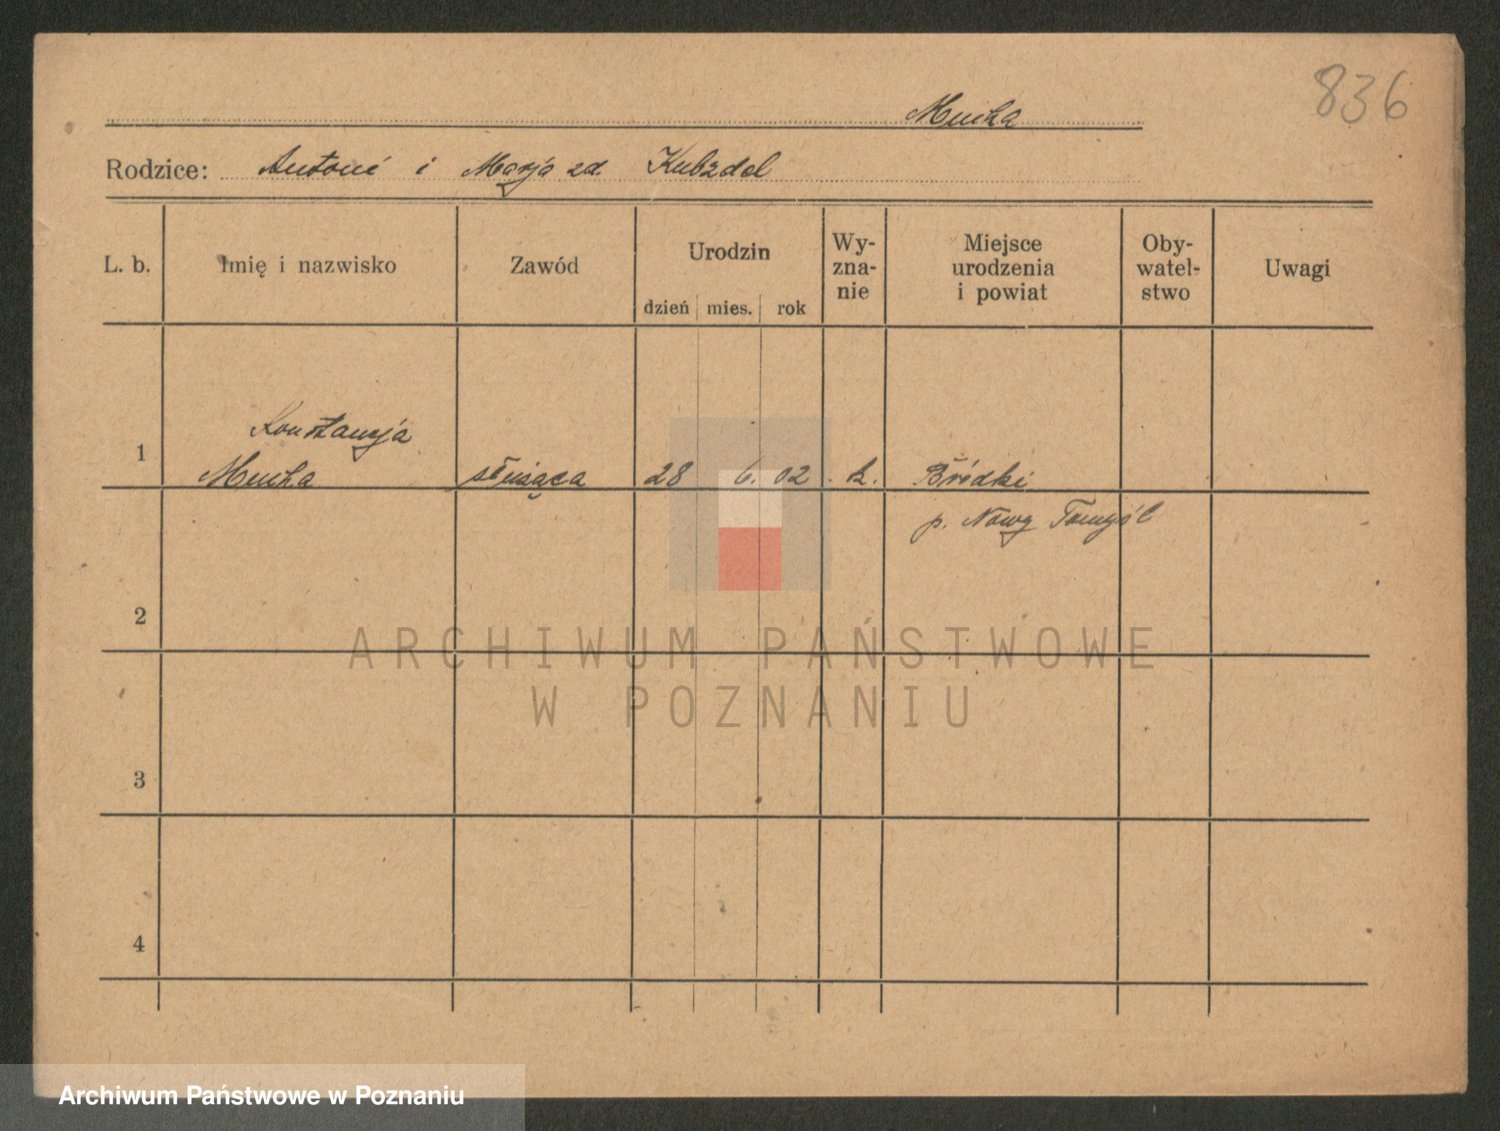 836
Mucha
Rodzice: Antoni i Marja zd Kubzdol
L. b. Imię i nazwisko Zawód Urodzin dzień mies. rok Wy-zna-nie Miejsce urodzenia i powiat Oby-watel-stwo Uwagi
Konstancja
1 Mucha służąca 28 6. 02 k. Bródki
p. Nowy Tomyśl
2
3
4
ARCHIWUM PAŃSTWOWE
W POZNANIU
Archiwum Państwowe w Poznaniu